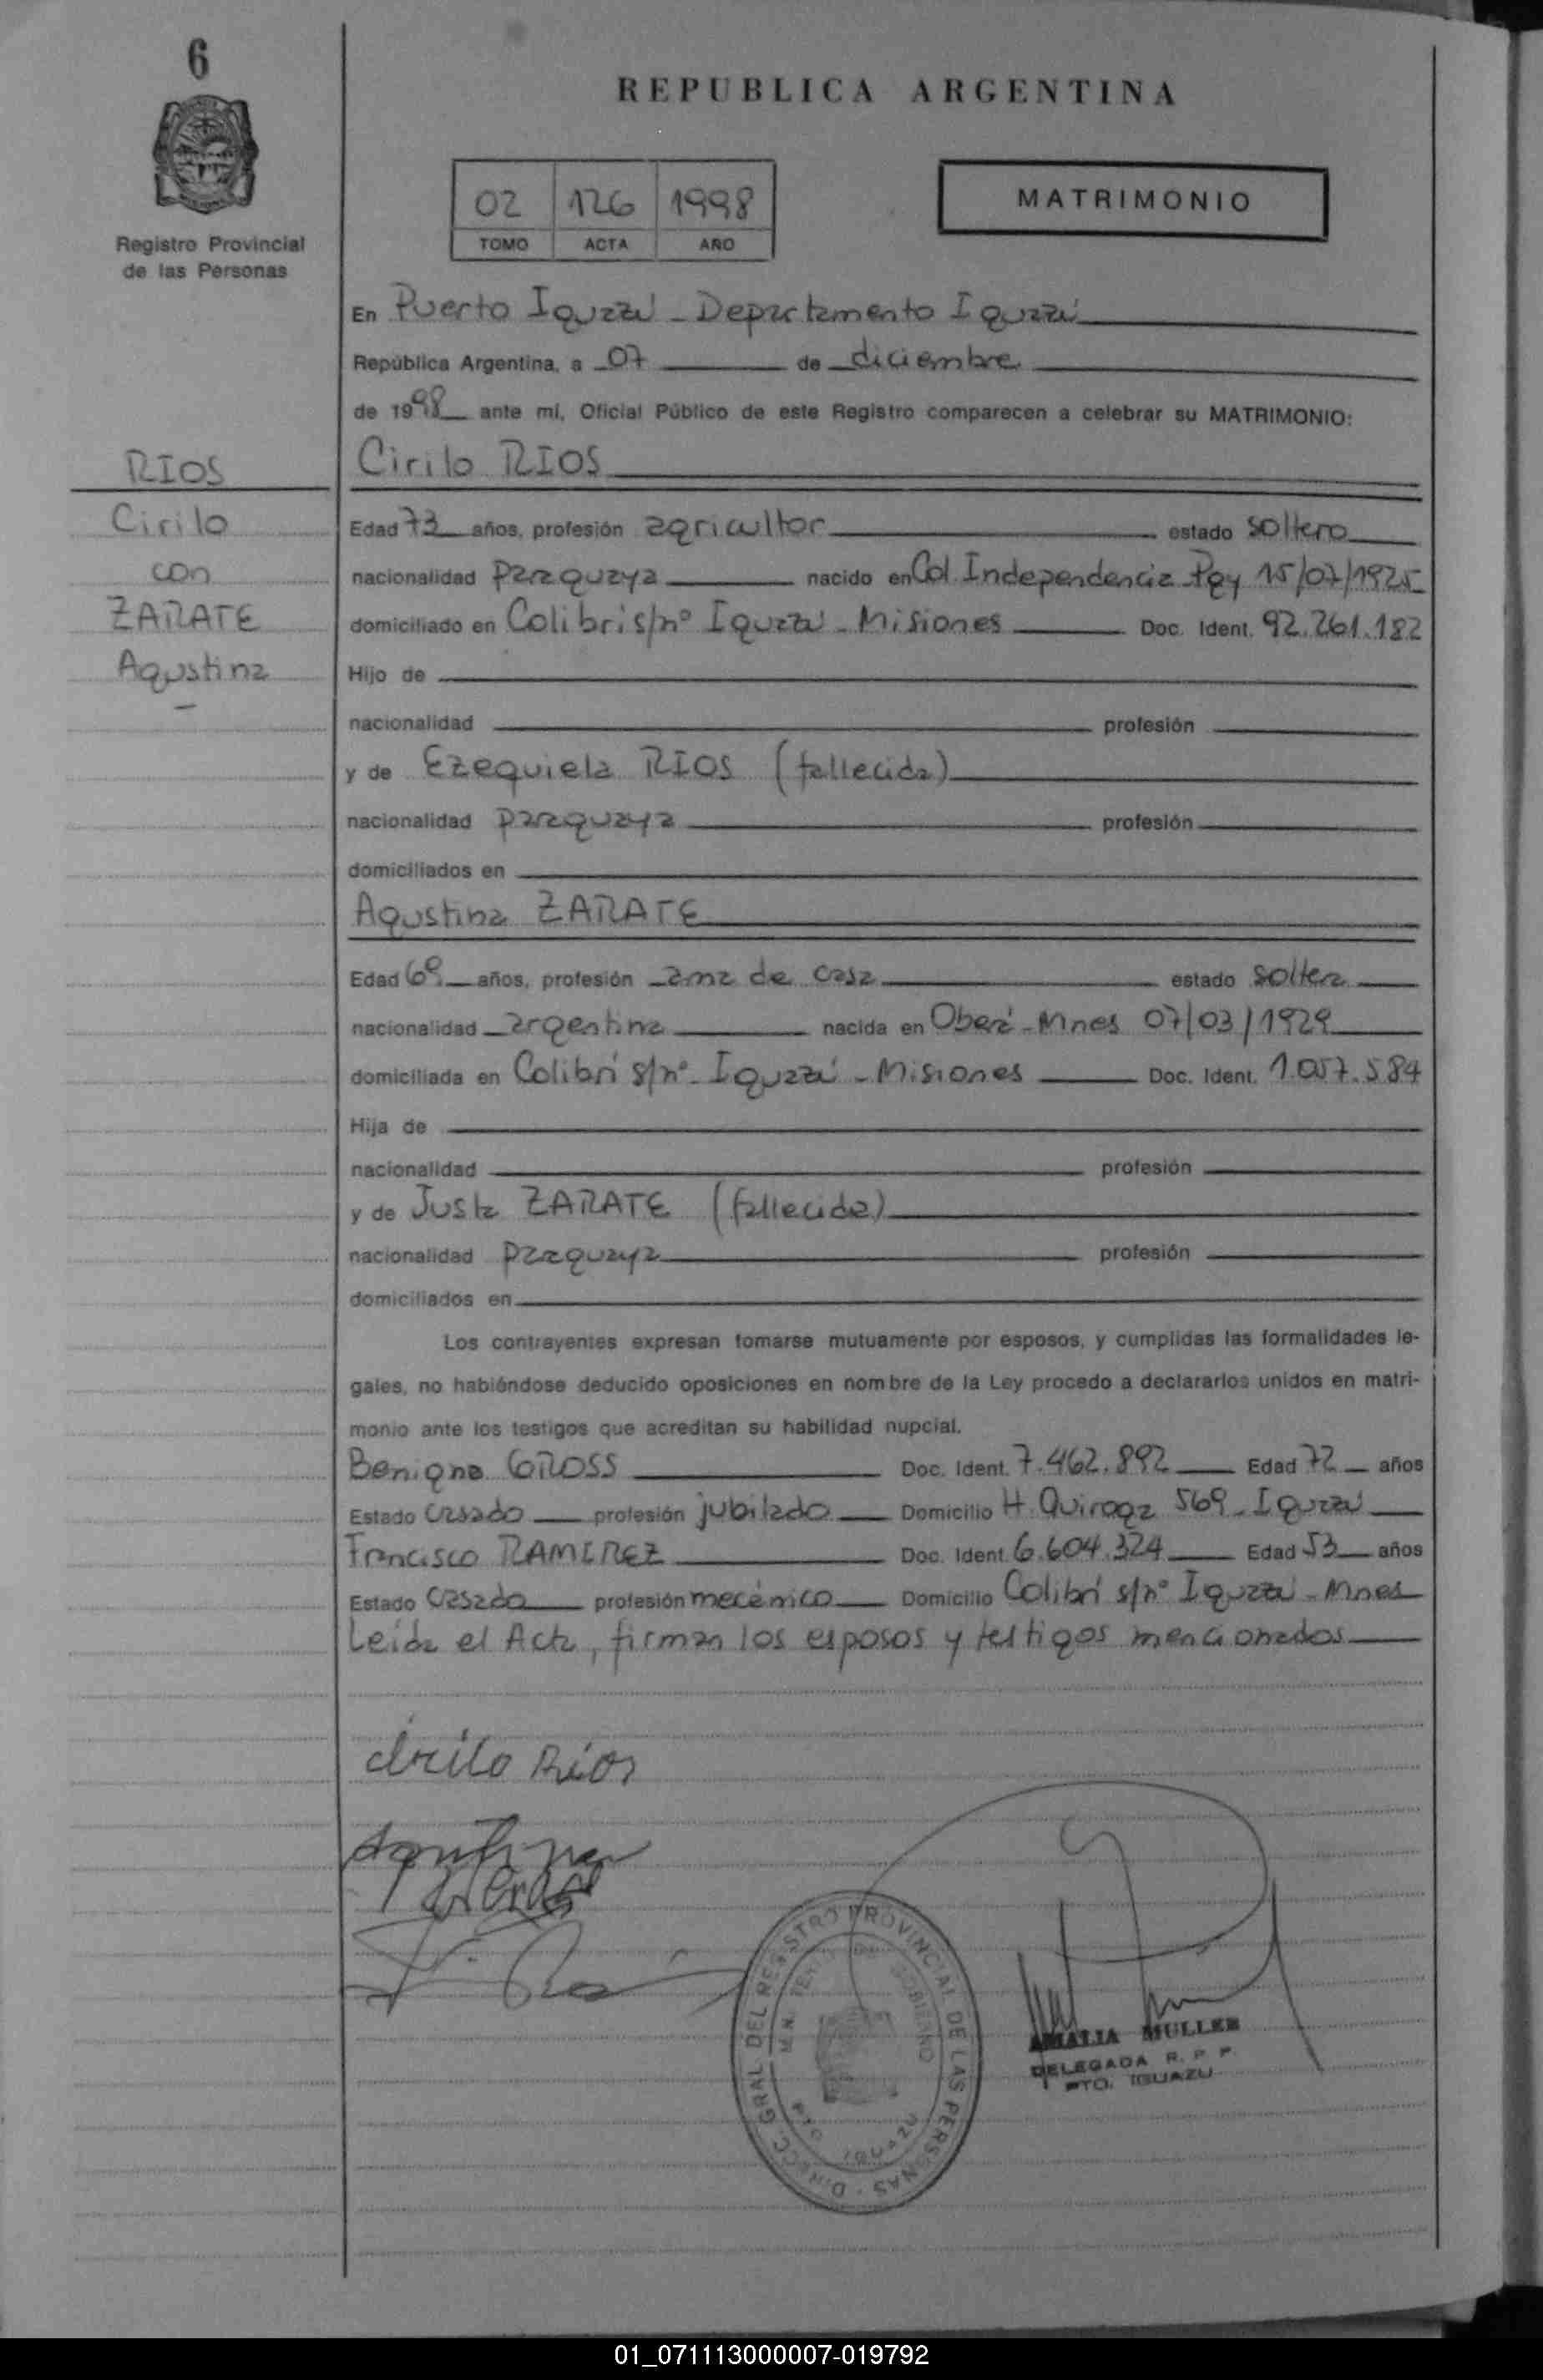 6
Registro Provincial
de las Personas
REPUBLICA ARGENTINA
02 126 1998
TOMO ACTA AÑO
MATRIMONIO
En Puerto Iguazú - Departamento Iguazú
República Argentina, a 07 de diciembre
de 1998 ante mí, Oficial Público de este Registro comparecen a celebrar su MATRIMONIO:
RIOS
Cirilo
con
ZARATE
Agustina
Cirilo RIOS
Edad 73 años, profesión agricultor estado soltero
nacionalidad paraguaya nacido en Col. Independencia Pgy 15/07/1925
domiciliado en Colibrí s/nº Iguazú - Misiones Doc. Ident. 92.261.182
Hijo de
nacionalidad profesión
y de Ezequiela RIOS (fallecida)
nacionalidad paraguaya profesión
domiciliados en
Agustina ZARATE
Edad 69 años, profesión ama de casa estado soltera
nacionalidad argentina nacida en Oberá - Mnes 07/03/1929
domiciliada en Colibrí s/nº - Iguazú - Misiones Doc. Ident. 1.057.584
Hija de
nacionalidad profesión
y de Justa ZARATE (fallecida)
nacionalidad paraguaya profesión
domiciliados en
Los contrayentes expresan tomarse mutuamente por esposos, y cumplidas las formalidades le-
gales, no habiéndose deducido oposiciones en nombre de la Ley procedo a declararlos unidos en matri-
monio ante los testigos que acreditan su habilidad nupcial.
Benigno GROSS Doc. Ident. 7.462.892 Edad 72 años
Estado casado profesión jubilado Domicilio H. Quiroga 569 - Iguazú
Francisco RAMIREZ Doc. Ident. 6.604.324 Edad 53 años
Estado casado profesión mecánico Domicilio Colibrí s/nº Iguazú - Mnes
Leída el Acta, firman los esposos y testigos mencionados
Cirilo Rios
Agustina
DIRECC. GRAL. DEL REGISTRO PROVINCIAL DE LAS PERSONAS
PTO. IGUAZU
AMALIA MULLER
DELEGADA R. P. P.
PTO. IGUAZU
01_071113000007-019792